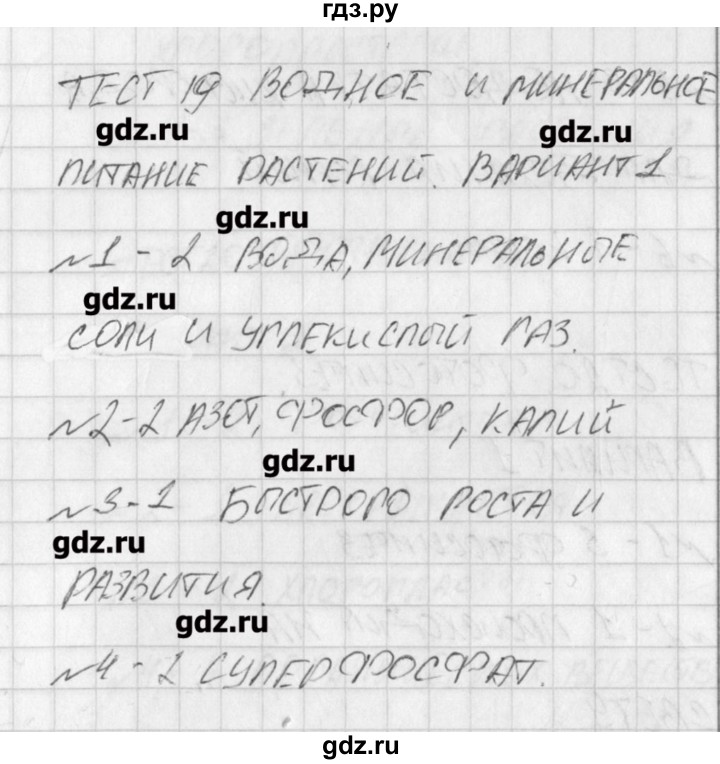 гдз.ру
ТЕСТ 19 ВОДНОЕ И МИНЕРАЛЬНОЕ
gdz.ru gdz.ru
ПИТАНИЕ РАСТЕНИЙ. ВАРИАНТ 1
gdz.ru
№1 - 2 ВОДА, МИНЕРАЛЬНЫЕ
gdz.ru
СОЛИ И УГЛЕКИСЛЫЙ ГАЗ.
№2-2 АЗОТ, ФОСФОР, КАЛИЙ
gdz.ru
№3-1 БЫСТРОГО РОСТА И
gdz.ru
РАЗВИТИЯ.
gdz.ru
№4-2 СУПЕРФОСФАТ.
gdz.ru